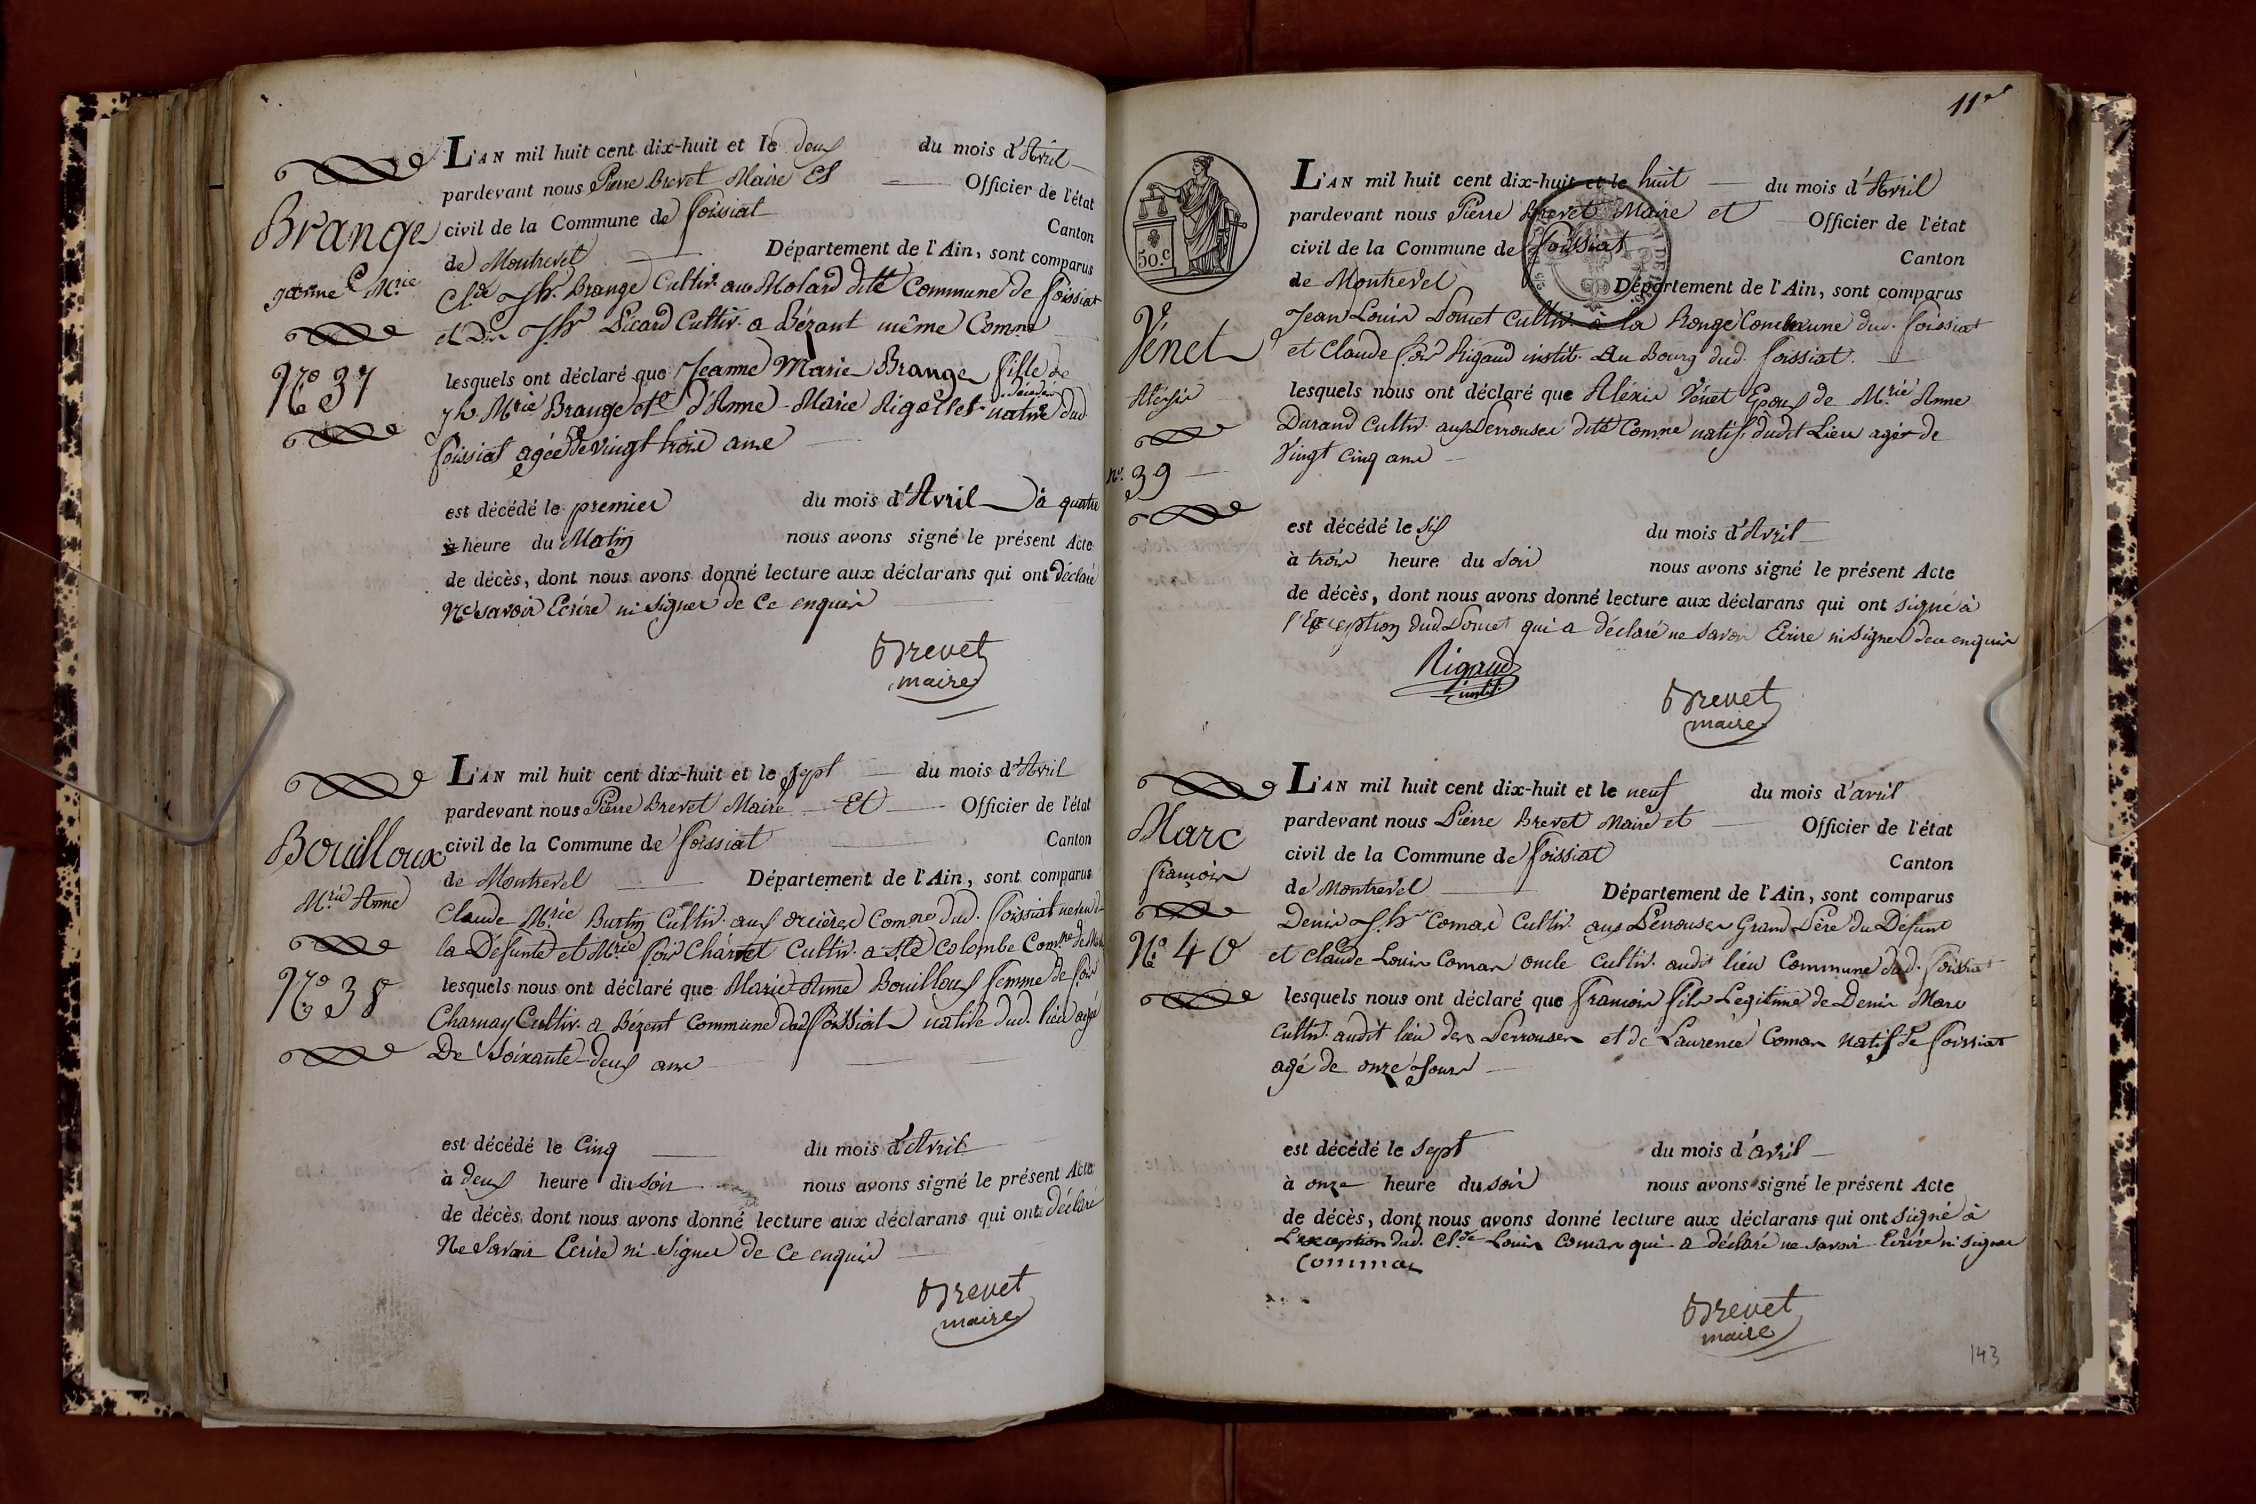 L'AN mil huit cent dix-huit et le deux du mois d'Avril
pardevant nous Pierre Brevet Maire Et Officier de l'état
civil de la Commune de foissiat Canton
de Montrevel Département de l'Ain, sont comparus
Brange
jeanne Mrie
N.o 37
Cl.de Jh. Brange Cultiv. au Molard dite Commune de foissiat
et Jh Picard Cultiv. a Bézant même Comne
lesquels ont déclaré que Jeanne Marie Brange fille de
Jh. Mrie Brange et d'Anne-Marie Rigollet décédée native dud.
foissiat agée de vingt trois ans
est décédé le premier du mois d'Avril à quatre
heure du Matin nous avons signé le présent Acte
de décès, dont nous avons donné lecture aux déclarans qui ont déclaré
Ne savoir Ecrire ni signer de ce enquis
Brevet
maire
L'AN mil huit cent dix-huit et le sept du mois d'Avril
pardevant nous Pierre Brevet Maire Et Officier de l'état
civil de la Commune de foissiat Canton
de Montrevel Département de l'Ain, sont comparus
Bouilloux
M.rie Anne
N.o 38
Claude Mrie Burtin Cultiv. aux orcières Comne dud. foissiat neveu de
la Défunte et Mrie foi Charvet Cultiv. a Ste Colombe Comne de
lesquels nous ont déclaré que Marie-Anne Bouilloux femme de foi
Charnay Cultiv. a Bézent Commune dud foissiat native dud. lieu agée
De Soixante-deux ans
est décédé le Cinq du mois d'Avril
à deux heure du soir nous avons signé le présent Acte
de décès, dont nous avons donné lecture aux déclarans qui ont déclaré
Ne Savoir Ecrire ni Signer de Ce enquis
Brevet
maire
11e
50.c
L'AN mil huit cent dix-huit et le huit du mois d'Avril
pardevant nous Pierre Brevet Maire et Officier de l'état
civil de la Commune de foissiat Canton
de Montrevel Département de l'Ain, sont comparus
Vénet
Aléxis
n.o 39
Jean Louis Domet Cultiv. à la Ronge Commune dud. foissiat
et Claude foi Rigaud instit. Au Bourg dud. foissiat.
lesquels nous ont déclaré que Aléxis Vénet Epoux de M.rie Anne
Durand Cultiv. aux Perrouses dite Comne natif dudit Lieu agé de
Vingt Cinq ans
est décédé le six du mois d'Avril
à trois heure du soir nous avons signé le présent Acte
de décès, dont nous avons donné lecture aux déclarans qui ont signé à
l'Exception dud Domet qui a déclaré ne savoir Ecrire ni signer de ce enquis
Rigaud
instit.
Brevet
maire
L'AN mil huit cent dix-huit et le neuf du mois d'avril
pardevant nous Pierre Brevet Maire et Officier de l'état
civil de la Commune de foissiat Canton
de Montrevel Département de l'Ain, sont comparus
Marc
françois
N.o 40
Denis Jh Comas Cultiv. aux Perrouses Grand Père du Défunt
et Claude Louis Comas oncle Cultiv. audit lieu Commune dud. foissiat
lesquels nous ont déclaré que françois fils Legitime de Denis Marc
Cultiv. audit lieu des Perrouses et de Laurence Comas Natif de foissiat
agé de onze Jours
est décédé le sept du mois d'avril
à onze heure du soir nous avons signé le présent Acte
de décès, dont nous avons donné lecture aux déclarans qui ont signé à
L'exception dud. Cl.de Louis Comas qui a déclaré ne savoir Ecrire ni signer
Commas
Brevet
maire
143